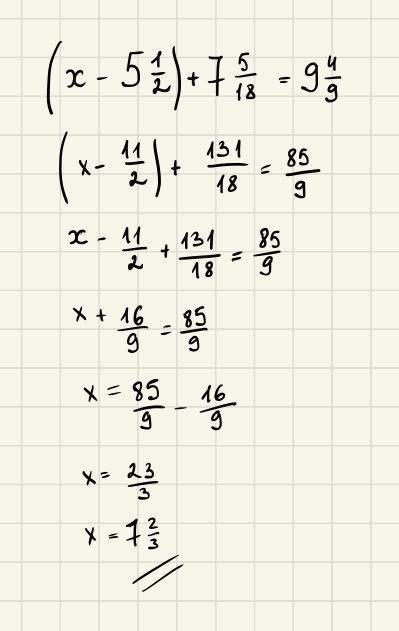 (x - 5 1/2) + 7 5/18 = 9 4/9
(x - 11/2) + 131/18 = 85/9
x - 11/2 + 131/18 = 85/9
x + 16/9 = 85/9
x = 85/9 - 16/9
x = 23/3
x = 7 2/3